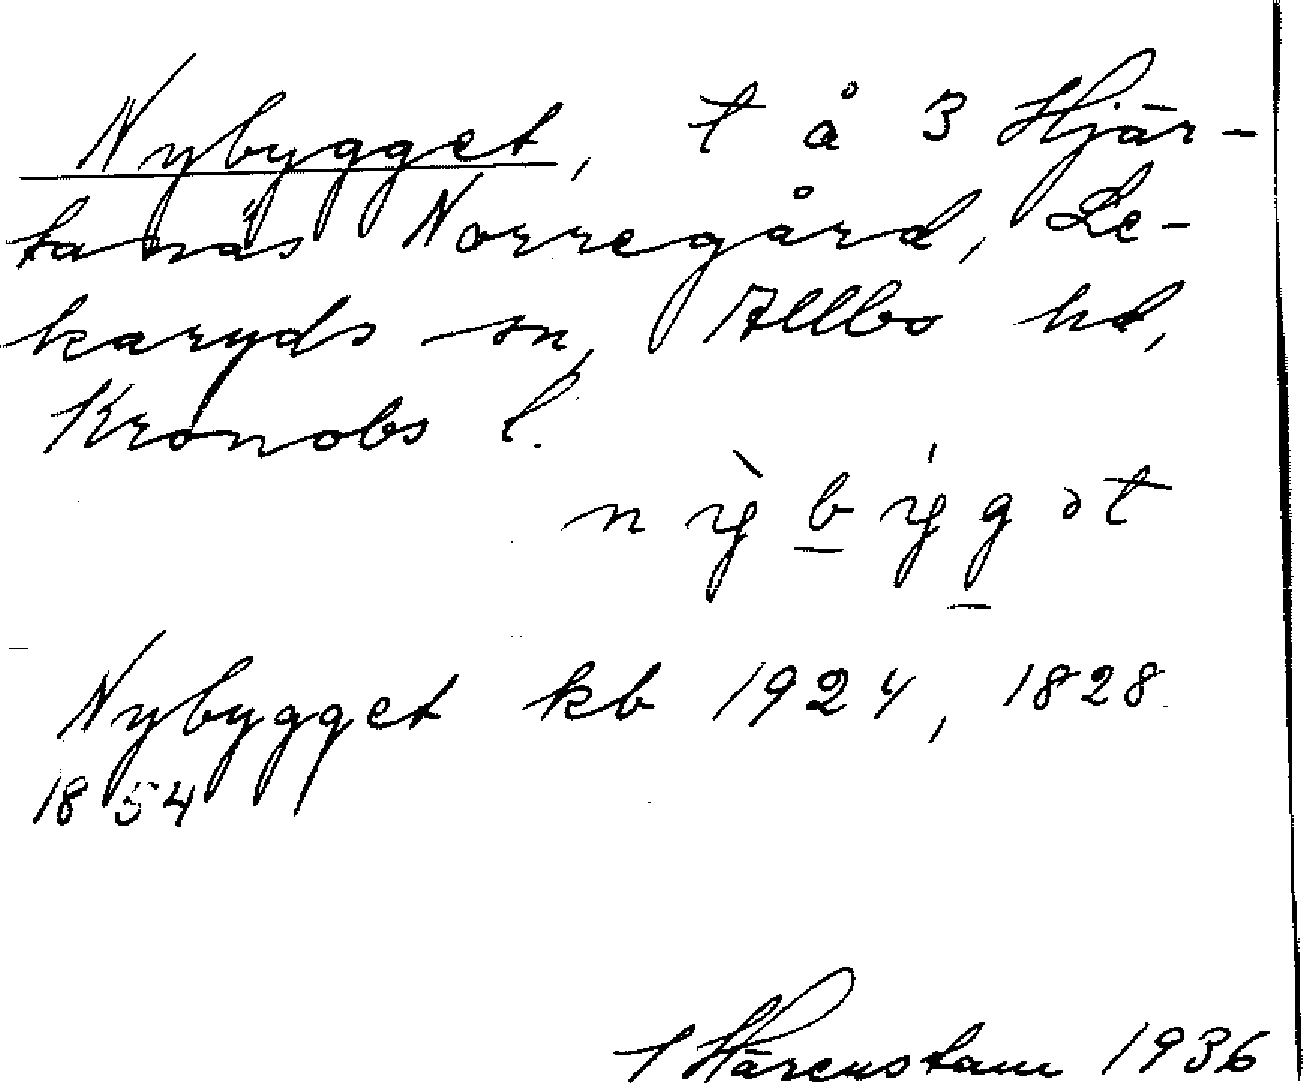 Nybygget, t å 3 Hjär-
tanäs Norregård, Le-
karyds sn, Allbo hd,
Kronobs l.
nỳbýgət
Nybygget kb 1924, 1828
1854
Härenstam 1936